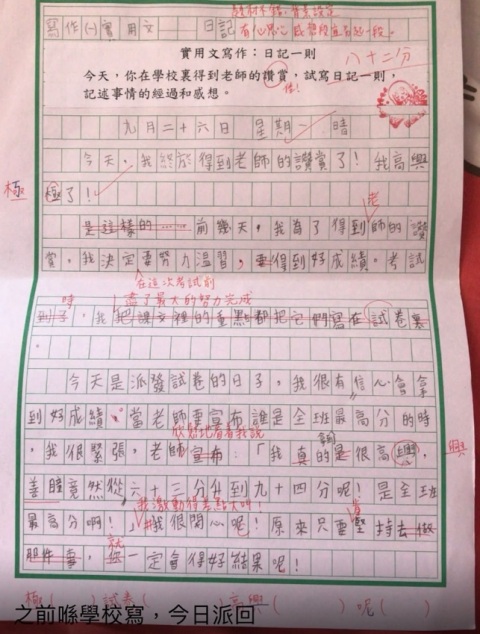 寫作(一)實用文 日記
八十二分
實用文寫作：日記一則
今天，你在學校裏得到老師的讚賞，試寫日記一則，
記述事情的經過和感想。
九月二十六日 星期一 晴
今天，我終於得到老師的讚賞了！我高興
極
極了！
是這樣的……前幾天，我為了得到師的讚
老
賞，我決定要努力溫習，要得到好成績。考試
在這次考試前
時 盡了最大的努力完成
到了，我把課文裡的重點都把它們寫在試卷裏
。
今天是派發試卷的日子，我很有信心會拿
到好成績。當老師要宣布誰是全班最高分的時
欣慰地看着我說
，我很緊張，老師宣布：「我真的是很高興，
興
善瞳竟然從六十三分升到九十四分呢！是全班
最高分啊！」我很開心呢！原來只要堅持去做
就
那件事，你一定會得好結果呢！
極( ) 試卷( ) 高興( ) 呢( )
之前喺學校寫，今日派回